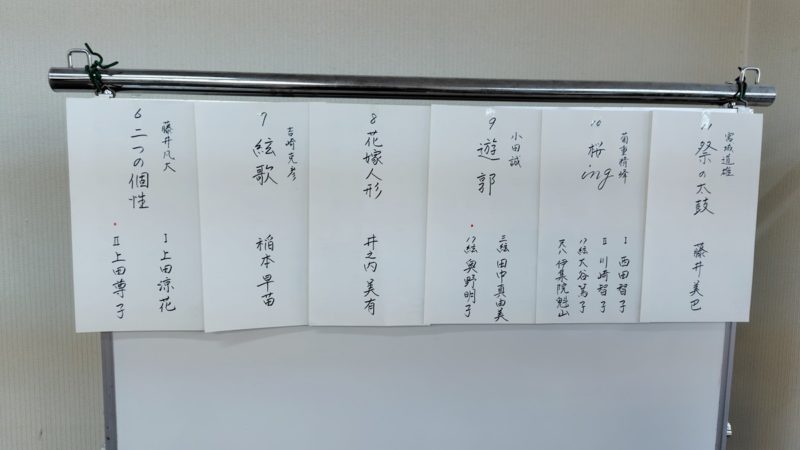 6 二つの個性
藤井凡大
Ⅰ 上田涼花
Ⅱ 上田尊子
7 絃歌
吉崎克彦
稲本早苗
8 花嫁人形
井之内美有
9 遊郭
小田誠
三絃 田中真由美
17絃 奥野明子
10 桜ing
菊重精峰
Ⅰ 西田智子
Ⅱ 川崎智子
17絃 大谷篤子
尺八 伊集院魁山
11 祭の太鼓
宮城道雄
藤井美巴